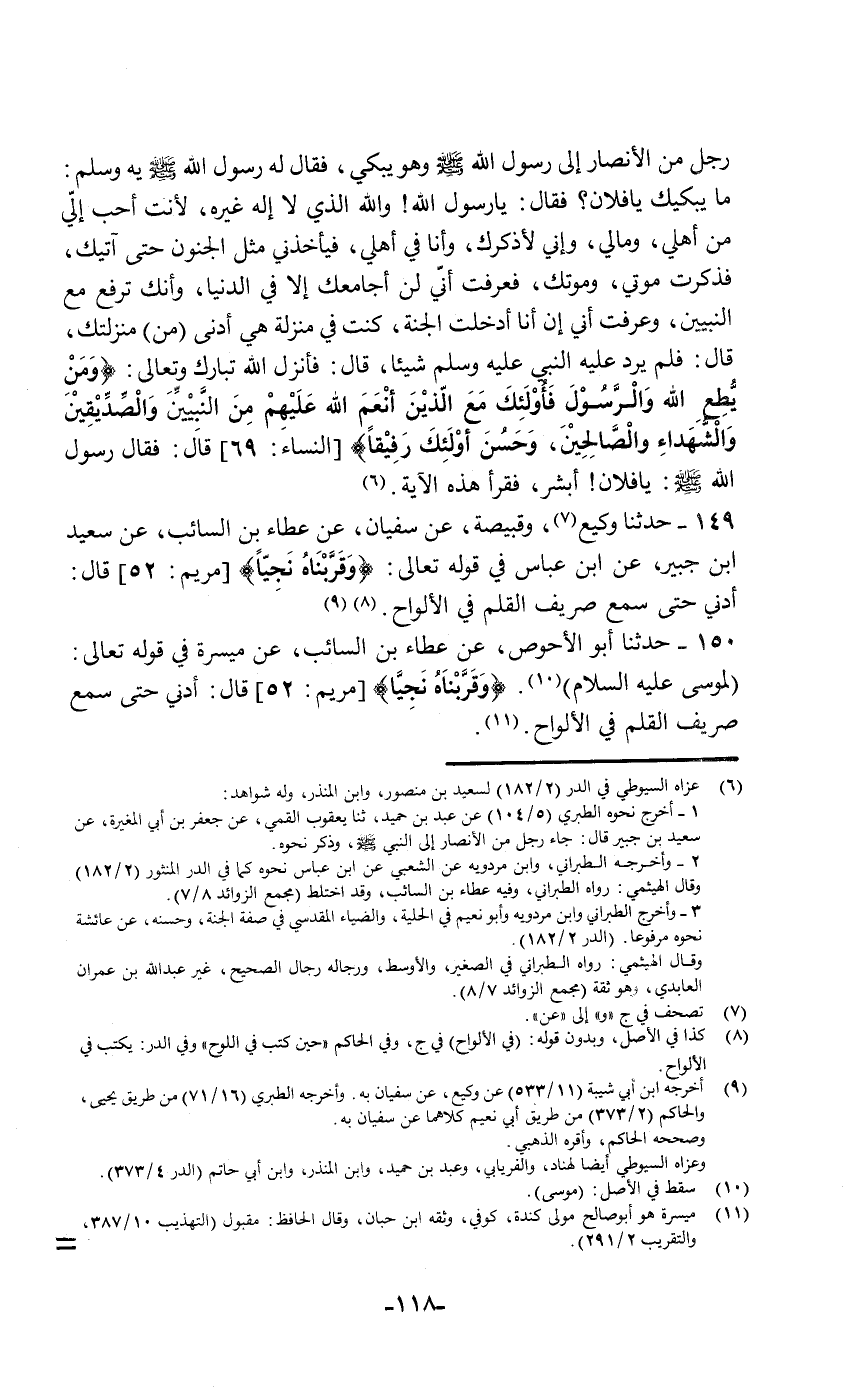 رجل من الأنصار إلى رسول الله ﷺ وهو يبكي، فقال له رسول الله ﷺ يه وسلم:
ما يبكيك يافلان؟ فقال: يارسول الله! والله الذي لا إله غيره، لأنت أحب إليّ
من أهلي، ومالي، وإني لأذكرك، وأنا في أهلي، فيأخذني مثل الجنون حتى آتيك،
فذكرت موتي، وموتك، فعرفت أنيّ لن أجامعك إلا في الدنيا، وأنك ترفع مع
النبيين، وعرفت أني إن أنا أدخلت الجنة، كنت في منزلة هي أدنى (من) منزلتك،
قال: فلم يرد عليه النبي عليه وسلم شيئا، قال: فأنزل الله تبارك وتعالى: ﴿وَمَنْ
يُّطِعِ الله وَالْـرَّسُـوْلَ فَأُوْلَئِكَ مَعَ الّذيْنَ أنْعَمَ الله عَلَيْهِمْ مِنَ النَّبِيِّينَ وَالْصِّدِّيْقِينَ
وَالْشُّهَداءِ والصَّالِحِيْنَ، وَحَسُنَ أوْلَئِكَ رَفِيْقاً﴾ [النساء: ٦٩] قال: فقال رسول
الله ﷺ: يافلان! أبشر، فقرأ هذه الآية. (٦)
١٤٩ ـ حدثنا وكيع(٧)، وقبيصة، عن سفيان، عن عطاء بن السائب، عن سعيد
ابن جبير، عن ابن عباس في قوله تعالى: ﴿وَقَرَّبْنَاهُ نَجِيّاً﴾ [مريم: ٥٢] قال:
أدني حتى سمع صريف القلم في الألواح. (٨) (٩)
١٥٠ ـ حدثنا أبو الأحوص، عن عطاء بن السائب، عن ميسرة في قوله تعالى:
(لموسى عليه السلام)(١٠). ﴿وَقَرَّبْنَاهُ نَجِيَّا﴾ [مريم: ٥٢] قال: أدني حتى سمع
صريف القلم في الألواح. (١١).
(٦) عزاه السيوطي في الدر (٢/١٨٢) لسعيد بن منصور، وابن المنذر، وله شواهد:
١ ـ أخرج نحوه الطبري (٥/١٠٤) عن عبد بن حميد، ثنا يعقوب القمي، عن جعفر بن أبي المغيرة، عن
سعيد بن جبير قال: جاء رجل من الأنصار إلى النبي ﷺ، وذكر نحوه.
٢ ـ وأخـرجـه الـطبراني، وابن مردويه عن الشعبي عن ابن عباس نحوه كما في الدر المنثور (٢/١٨٢)
وقال الهيثمي: رواه الطبراني، وفيه عطاء بن السائب، وقد اختلط (مجمع الزوائد ٧/٨).
٣ ـ وأخرج الطبراني وابن مردويه وأبو نعيم في الحلية، والضياء المقدسي في صفة الجنة، وحسنه، عن عائشة
نحوه مرفوعا. (الدر ٢/١٨٢).
وقـال الهيثمي: رواه الـطبراني في الصغير، والأوسط، ورجاله رجال الصحيح، غير عبدالله بن عمران
العابدي، وهو ثقة (مجمع الزوائد ٨/٧).
(٧) تصحف في ج «و» إلى «عن».
(٨) كذا في الأصل، وبدون قوله: (في الألواح) في ج، وفي الحاكم «حين كتب في اللوح» وفي الدر: يكتب في
الألواح.
(٩) أخرجه ابن أبي شيبة (١١/٥٣٣) عن وكيع، عن سفيان به. وأخرجه الطبري (١٦/٧١) من طريق يحيى،
والحاكم (٢/٣٧٣) من طريق أبي نعيم كلاهما عن سفيان به.
وصححه الحاكم، وأقره الذهبي.
وعزاه السيوطي أيضا لهناد، والفريابي، وعبد بن حميد، وابن المنذر، وابن أبي حاتم (الدر ٤/٣٧٣).
(١٠) سقط في الأصل: (موسى).
(١١) ميسرة هو أبوصالح مولى كندة، كوفي، وثقه ابن حبان، وقال الحافظ: مقبول (التهذيب ١٠/٣٨٧،
والتقريب ٢/٢٩١). =
-١١٨-